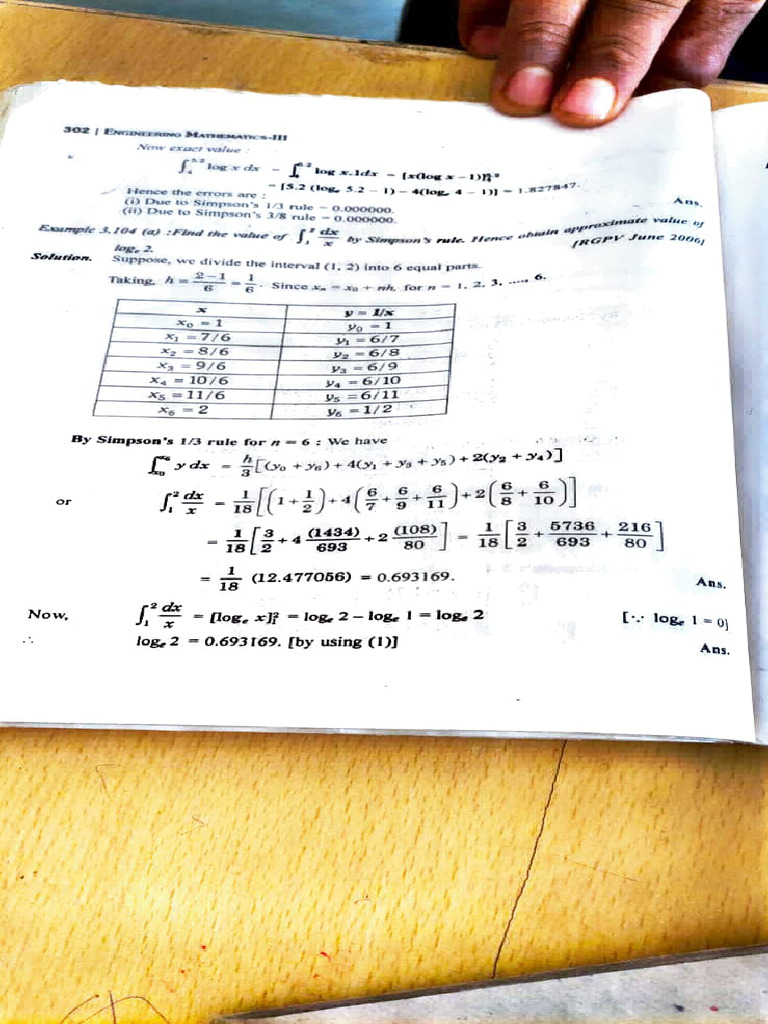 302 | ENGINEERING MATHEMATICS-III
Now exact value :
∫₄^5.2 log x dx = ∫₄^5.2 log x.1dx = [x(log x – 1)]₄^5.2
= [5.2 (logₑ 5.2 – 1) – 4(logₑ 4 – 1)] = 1.827847.
Hence the errors are :
(i) Due to Simpson's 1/3 rule = 0.000000.
(ii) Due to Simpson's 3/8 rule = 0.000000. Ans.
Example 3.104 (a) :Find the value of ∫₁² dx/x by Simpson's rule. Hence obtain approximate value of
logₑ 2. [RGPV June 2006]
Solution. Suppose, we divide the interval (1, 2) into 6 equal parts.
Taking, h = (2–1)/6 = 1/6. Since xₙ = x₀ + nh, for n = 1, 2, 3, ...., 6.
x y = 1/x
x₀ = 1 y₀ = 1
x₁ = 7/6 y₁ = 6/7
x₂ = 8/6 y₂ = 6/8
x₃ = 9/6 y₃ = 6/9
x₄ = 10/6 y₄ = 6/10
x₅ = 11/6 y₅ = 6/11
x₆ = 2 y₆ = 1/2
By Simpson's 1/3 rule for n = 6 : We have
∫ₓ₀^x₆ y dx = h/3 [(y₀ + y₆) + 4(y₁ + y₃ + y₅) + 2(y₂ + y₄)]
or ∫₁² dx/x = 1/18 [(1 + 1/2) + 4(6/7 + 6/9 + 6/11) + 2(6/8 + 6/10)]
= 1/18 [3/2 + 4 (1434)/693 + 2 (108)/80] = 1/18 [3/2 + 5736/693 + 216/80]
= 1/18 (12.477056) = 0.693169. Ans.
Now, ∫₁² dx/x = [logₑ x]₁² = logₑ 2 – logₑ 1 = logₑ 2 [∵ logₑ 1 = 0]
∴ logₑ 2 = 0.693169. [by using (1)] Ans.